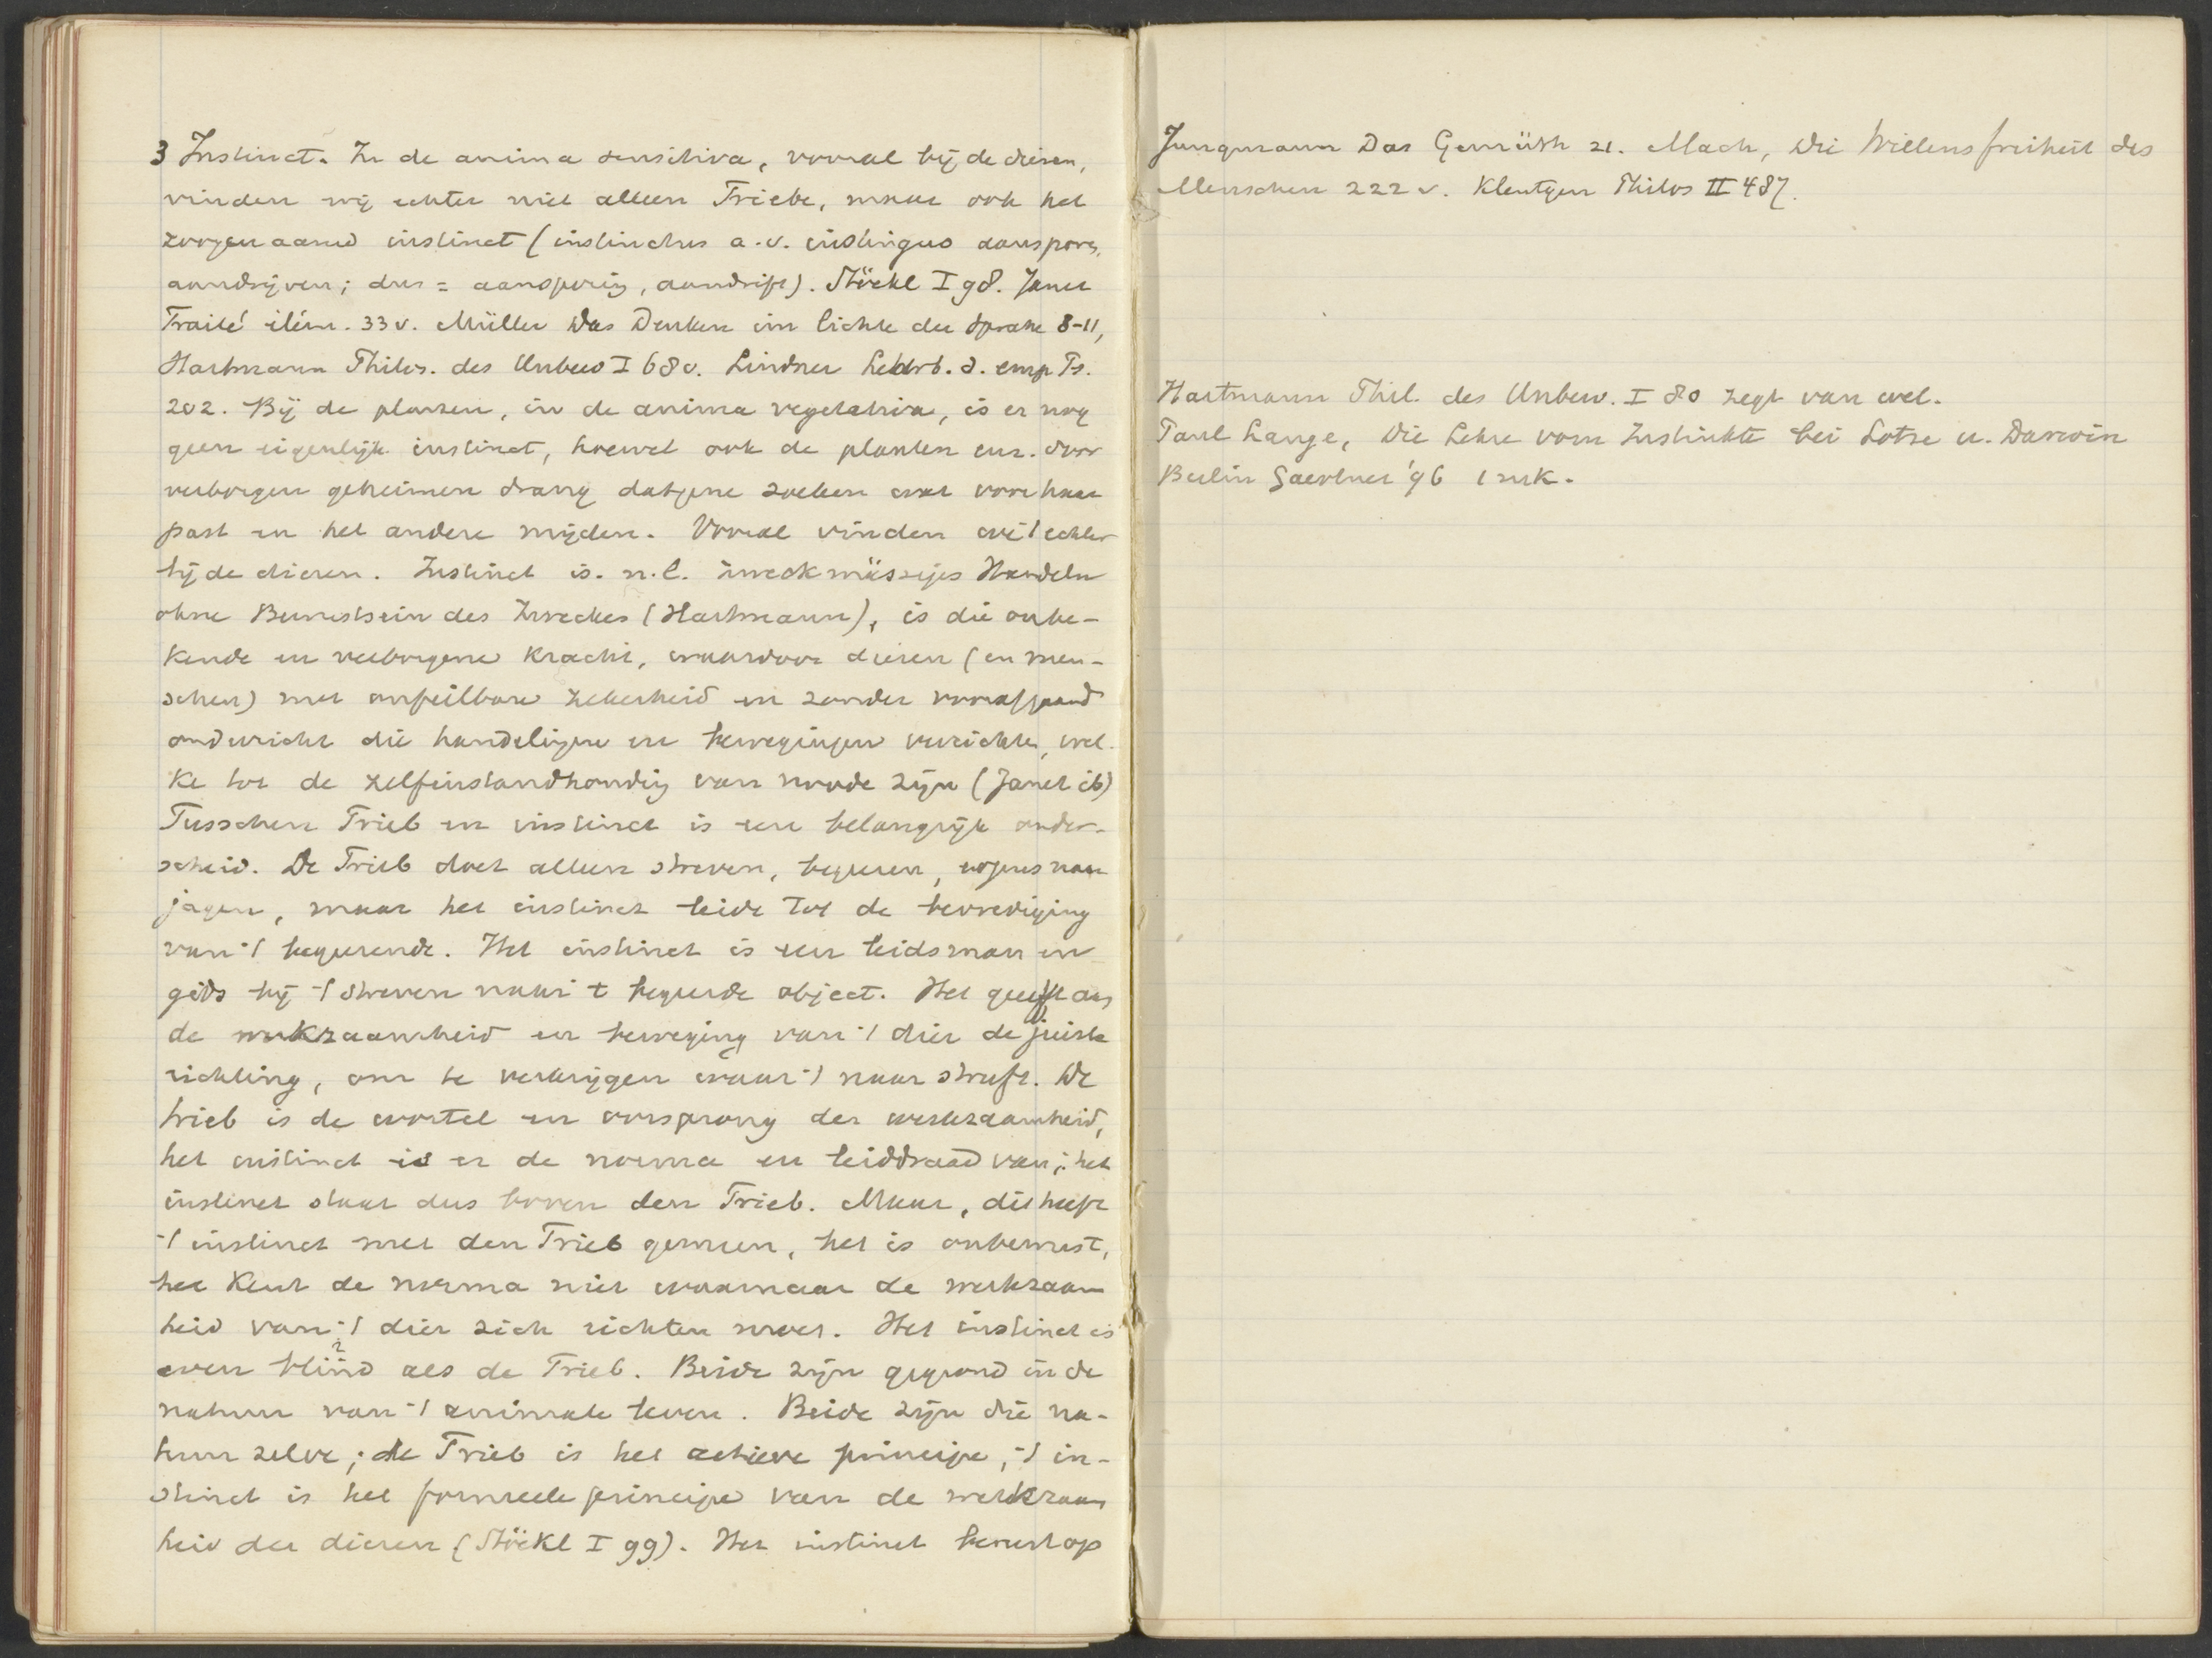 3 Instinct. In de anima sensitiva, vooral bij de dieren,
vinden wij echter niet alleen Triebe, maar ook het
zoogenaamd instinct (instinctus a. v. instinguo aanspore,
aandrijven; dus = aansporing, aandrift). Stöckl I 98. Janet
Traité élém. 33 v. Müller Das Denken im Lichte der Sprache 8-11,
Hartmann Philos. des Unbew I 68 v. Lindner Lehrb. d. emp Ps.
202. Bij de planten, in de anima vegetativa, is er nog
geen eigenlijk instinct, hoewel ook de planten enz. door
verborgen geheimen drang datgene zoeken wat voor haar
past en het andere mijden. Vooral vinden wij 't echter
bij de dieren. Instinct is n.l. zweckmässiges Handeln
ohne Bewusstsein des Zweckes (Hartmann), is die onbe-
kende en verborgene kracht, waardoor dieren (en men-
schen) met onfeilbare zekerheid en zonder voorafgaand
onderricht die handelingen en bewegingen verrichten, wel-
ke tot de zelfinstandhouding van noode zijn (Janet ib)
Tusschen Trieb en instinct is een belangrijk onder-
scheid. De Trieb doet alleen streven, begeeren, ergens naar
jagen, maar het instinct leidt tot de bevrediging
van 't begeerende. Het instinct is een leidsman en
gids bij 't streven naar 't begeerde object. Het geeft aan
de werkzaamheid en beweging van 't dier de juiste
richting, om te verkrijgen waar 't naar streeft. De
trieb is de wortel en oorsprong der werkzaamheid,
het instinct is er de norma en leiddraad van; het
instinct staat dus boven den Trieb. Maar, dit heeft
't instinct met den Trieb gemeen, het is onbewust,
het kent de norma niet waarnaar de werkzaam
heid van 't dier zich richten moet. Het instinct is
even blind als de Trieb. Beide zijn gegrond in de
natuur van 't animale leven. Beide zijn die na-
tuur zelve; de Trieb is het actieve principe, 't in-
stinct is het formeele principe van de werkzaam
heid der dieren (Stöckl I 99). Het instinct berust op
Jungmann Das Gemüth 21. Mach, Die Willensfreiheit des
Menschen 222 v. Kleutgen Philos II 487.
Hartmann Phil. des Unbew. I 80 zegt van wel.
Paul Lange, Die Lehre vom Instinkte bei Lotze u. Darwin
Berlin Gaertner '96 1 mk.